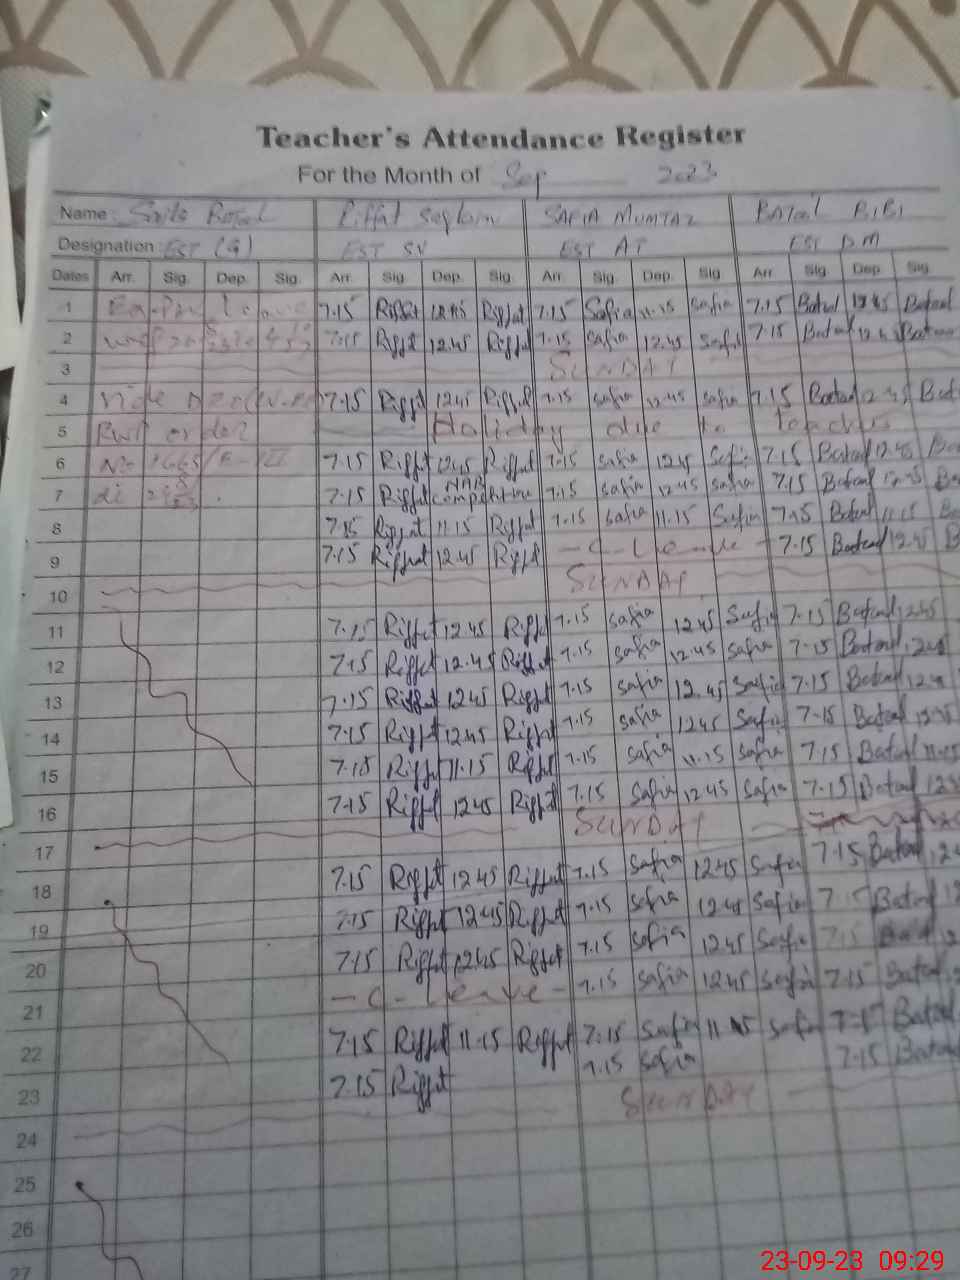 Teacher's Attendance Register
For the Month of Sep 2023
Name: Riffat SAFIA MUMTAZ BATOOL BIBI
Designation: EST (G) EST SV EST AT EST DM
Dates Arr. Sig. Dep. Sig. Arr. Sig. Dep. Sig. Arr. Sig. Dep. Sig. Arr. Sig. Dep. Sig.
1 7.15 Riffat Riffat 7.15 Safia 11.15 Safia 7.15 Batool 12.45 Batool
2 7.15 Riffat 12.45 Riffat 7.15 Safia 12.45 Safia 7.15 Batool 12.45 Batool
3 SUNDAY
4 7.15 Riffat 12.45 Riffat 7.15 Safia 12.45 Safia 7.15 Batool 12.45
5 order Holiday due to
6 7.15 Riffat 12.45 Riffat 7.15 Safia 12.45 Safia 7.15 Batool 12.45
7 7.15 Riffat competition 7.15 Safia 12.45 Safia 7.15 Batool 12.45
8 7.15 Riffat 11.15 Riffat 7.15 Safia 11.15 Safia 7.15 Batool 11.15
9 7.15 Riffat 12.45 Riffat - C - Leave - 7.15 Batool 12.45
10 SUNDAY
11 7.15 Riffat 12.45 Riffat 7.15 Safia 12.45 Safia 7.15 Batool 12.45
12 7.15 Riffat 12.45 Riffat 7.15 Safia 12.45 Safia 7.15 Batool
13 7.15 Riffat 12.45 Riffat 7.15 Safia 12.45 Safia 7.15 Batool
14 7.15 Riffat 12.45 Riffat 7.15 Safia 12.45 Safia 7.15 Batool 12.45
15 7.15 Riffat 11.15 Riffat 7.15 Safia 11.15 Safia 7.15 Batool 11.15
16 7.15 Riffat 12.45 Riffat 7.15 Safia 12.45 Safia 7.15 Batool
17 SUNDAY
18 7.15 Riffat 12.45 Riffat 7.15 Safia 12.45 Safia 7.15 Batool
19 7.15 Riffat 12.45 Riffat 7.15 Safia 12.45 Safia 7.15 Batool
20 7.15 Riffat 12.45 Riffat 7.15 Safia 12.45 Safia 7.15 Batool
21 - C - Leave - 7.15 Safia 12.45 Safia 7.15 Batool
22 7.15 Riffat 11.15 Riffat 7.15 Safia 11.15 Safia 7.15 Batool
23 7.15 Riffat 7.15 Safia 7.15 Batool
24 SUNDAY
25
26
27
23-09-23 09:29